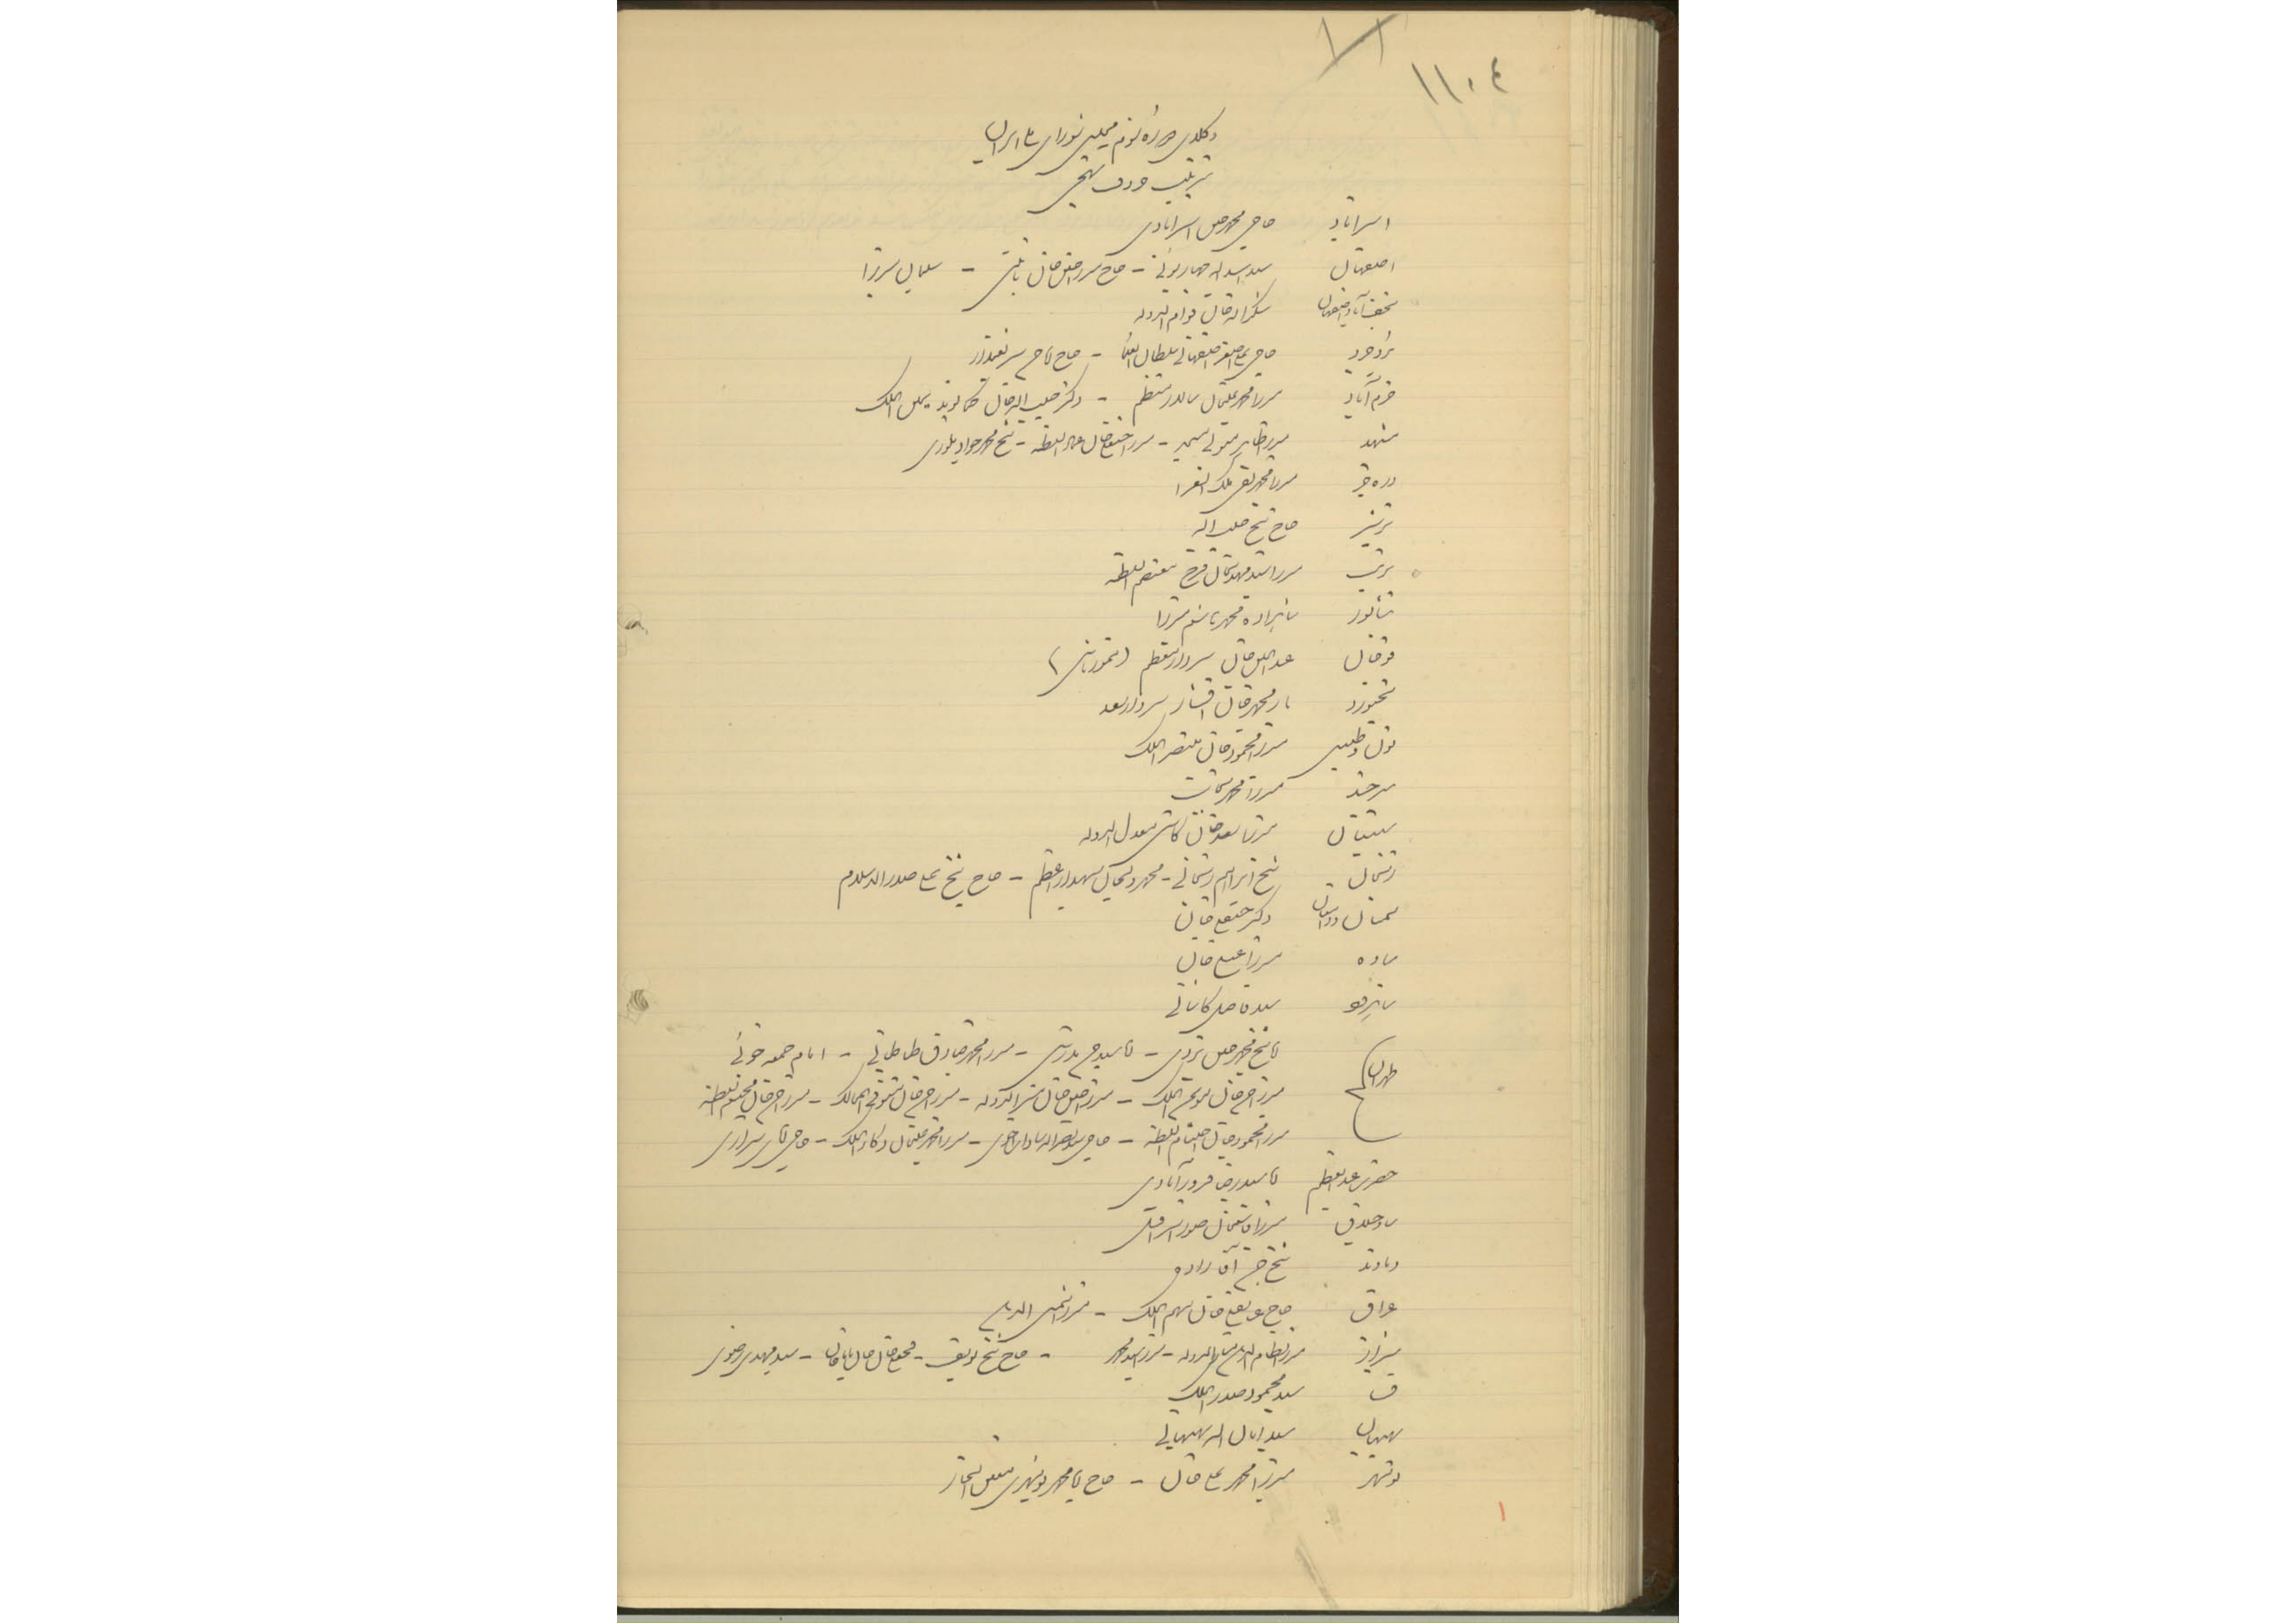 ١١٠٤
وکلای دوره سوم مجلس شورای ملی ایران
بترتیب حروف تهجی
استراباد حاجی محمد حسن استرابادی
اصفهان سید اسدالله چهارسوئی - حاج میرزا حسن خان - سلیمان میرزا
نجف آباد اصفهان شکرالله خان قوام الدوله
بروجرد حاجی علی اصغر اصفهانی سلطان العلما - حاج
خرم آباد میرزا محمد علیخان سالار منتظم - دکتر حبیب الله خان
مشهد میرزا طاهر - میرزا حسنعلی خان - شیخ محمد جواد
دره جز میرزا محمد تقی ملک الشعرا
ترشیز حاج شیخ حبیب الله
تربت میرزا سید مهدیخان فرخ معتصم السلطنه
نشابور شاهزاده محمد هاشم میرزا
قوچان عبدالحسین خان سردار معظم (تیمورتاش)
بجنورد یار محمد خان افشار سردار سعد
تون و طبس میرزا محمود خان منتصر الملک
بیرجند میرزا محمد نجات
سیستان میرزا سعد خان کاشی معدل الدوله
زنجان شیخ ابراهیم زنجانی - محمد ولیخان سپهدار اعظم - حاج شیخ علی صدرالاسلام
سمنان و دامغان دکتر حسنعلی خان
ساوه میرزا عیسی خان
شاهرود سید فاضل کاشانی
طهران آشیخ محمد حسین یزدی - آسید حسن مدرس - میرزا محمد صادق طباطبائی - امام جمعه خوئی
میرزا حسن خان مؤتمن الملک - میرزا حسن خان مشیرالدوله - میرزا حسن خان مستوفی الممالک - میرزا حسن خان محتشم السلطنه
میرزا محمود خان احتشام السلطنه - حاجی سید نصرالله سادات اخوی - میرزا محمد علیخان ذکاء الملک - حاجی آقای شیرازی
حضرت عبدالعظیم آسید رضا فیروزآبادی
ساوجبلاق میرزا قاسمخان صور اسرافیل
دماوند شیخ حسن آقازاده
عراق حاج عزیز الله خان سهم الملک - میرزا شمس الدین
شیراز میرزا نظام الدین مشار الدوله - میرزا سید محمد - حاج شیخ یوسف - محمد علی خان - سید مهدی رضوی
فسا سید محمود صدر الملک
بهبهان سید امان الله بهبهانی
بوشهر میرزا محمد علی خان - حاج آقا محمد بوشهری معین التجار
١